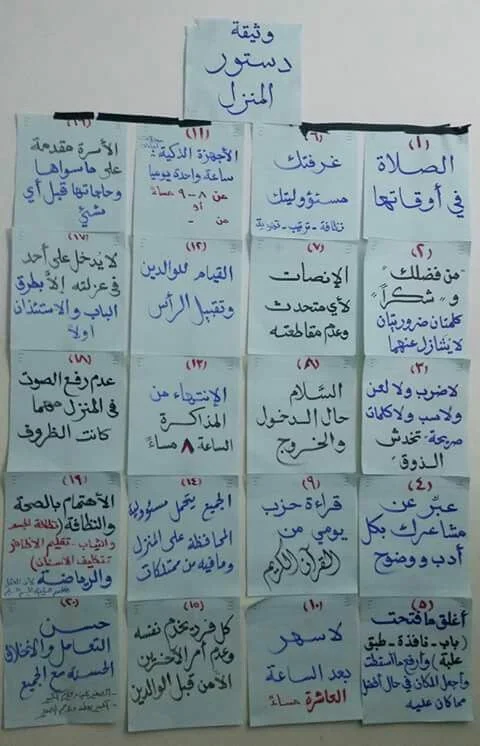 وثيقة
دستور
المنزل
(١)
الصلاة
في أوقاتها
(٢)
"من فضلك"
و "شكراً"
كلمتان ضروريتان
لا يتنازل عنهما
(٣)
لا ضرب ولا لعن
ولا سب ولا كلمات
صريحة تخدش
الذوق
(٤)
عبّر عن
مشاعرك بكل
أدب ووضوح
(٥)
أغلق ما فتحت
(باب - نافذة - طبق
علبة) وأرفع ما أسقطت
وأجعل المكان في حال أفضل
مما كان عليه
(٦)
غرفتك
مسئووليتك
نظافة - ترتيب -
(٧)
الإنصات
لأي متحدث
وعدم مقاطعته
(٨)
السَّلام
حال الدخول
والخروج
(٩)
قراءة حزب
يومي من
القرآن الكريم
(١٠)
لا سهر
بعد الساعة
العاشرة مساءً
(١١)
الأجهزة الذكية:
ساعة واحدة يوميا
من ٨ - ٩ مساءً
أو
من -
(١٢)
القيام للوالدين
وتقبيل الرأس
(١٣)
الإنتهاء من
المذاكرة
الساعة ٨ مساءً
(١٤)
الجميع يتحمل مسئوولية
المحافظة على المنزل
وما فيه من ممتلكات
(١٥)
كل فرد يخدم نفسه
وعدم أمر الآخرين
الأمن قبل الوالدين
(١٦)
الأسرة مقدمة
على ما سواها
وحاجاتها قبل أي
شيئ
(١٧)
لا يدخل على أحد
في عزلته إلا بطرق
الباب والاستئذان
اولاً
(١٨)
عدم رفع الصوت
في المنزل مهما
كانت الظروف
(١٩)
الأهتمام بالصحة
والنظافة (نظافة الجسم
والثياب - تقليم الأظافر
تنظيف الأسنان)
والرياضة
(٢٠)
حسن
التعامل والأخلاق
الحسنه مع الجميع